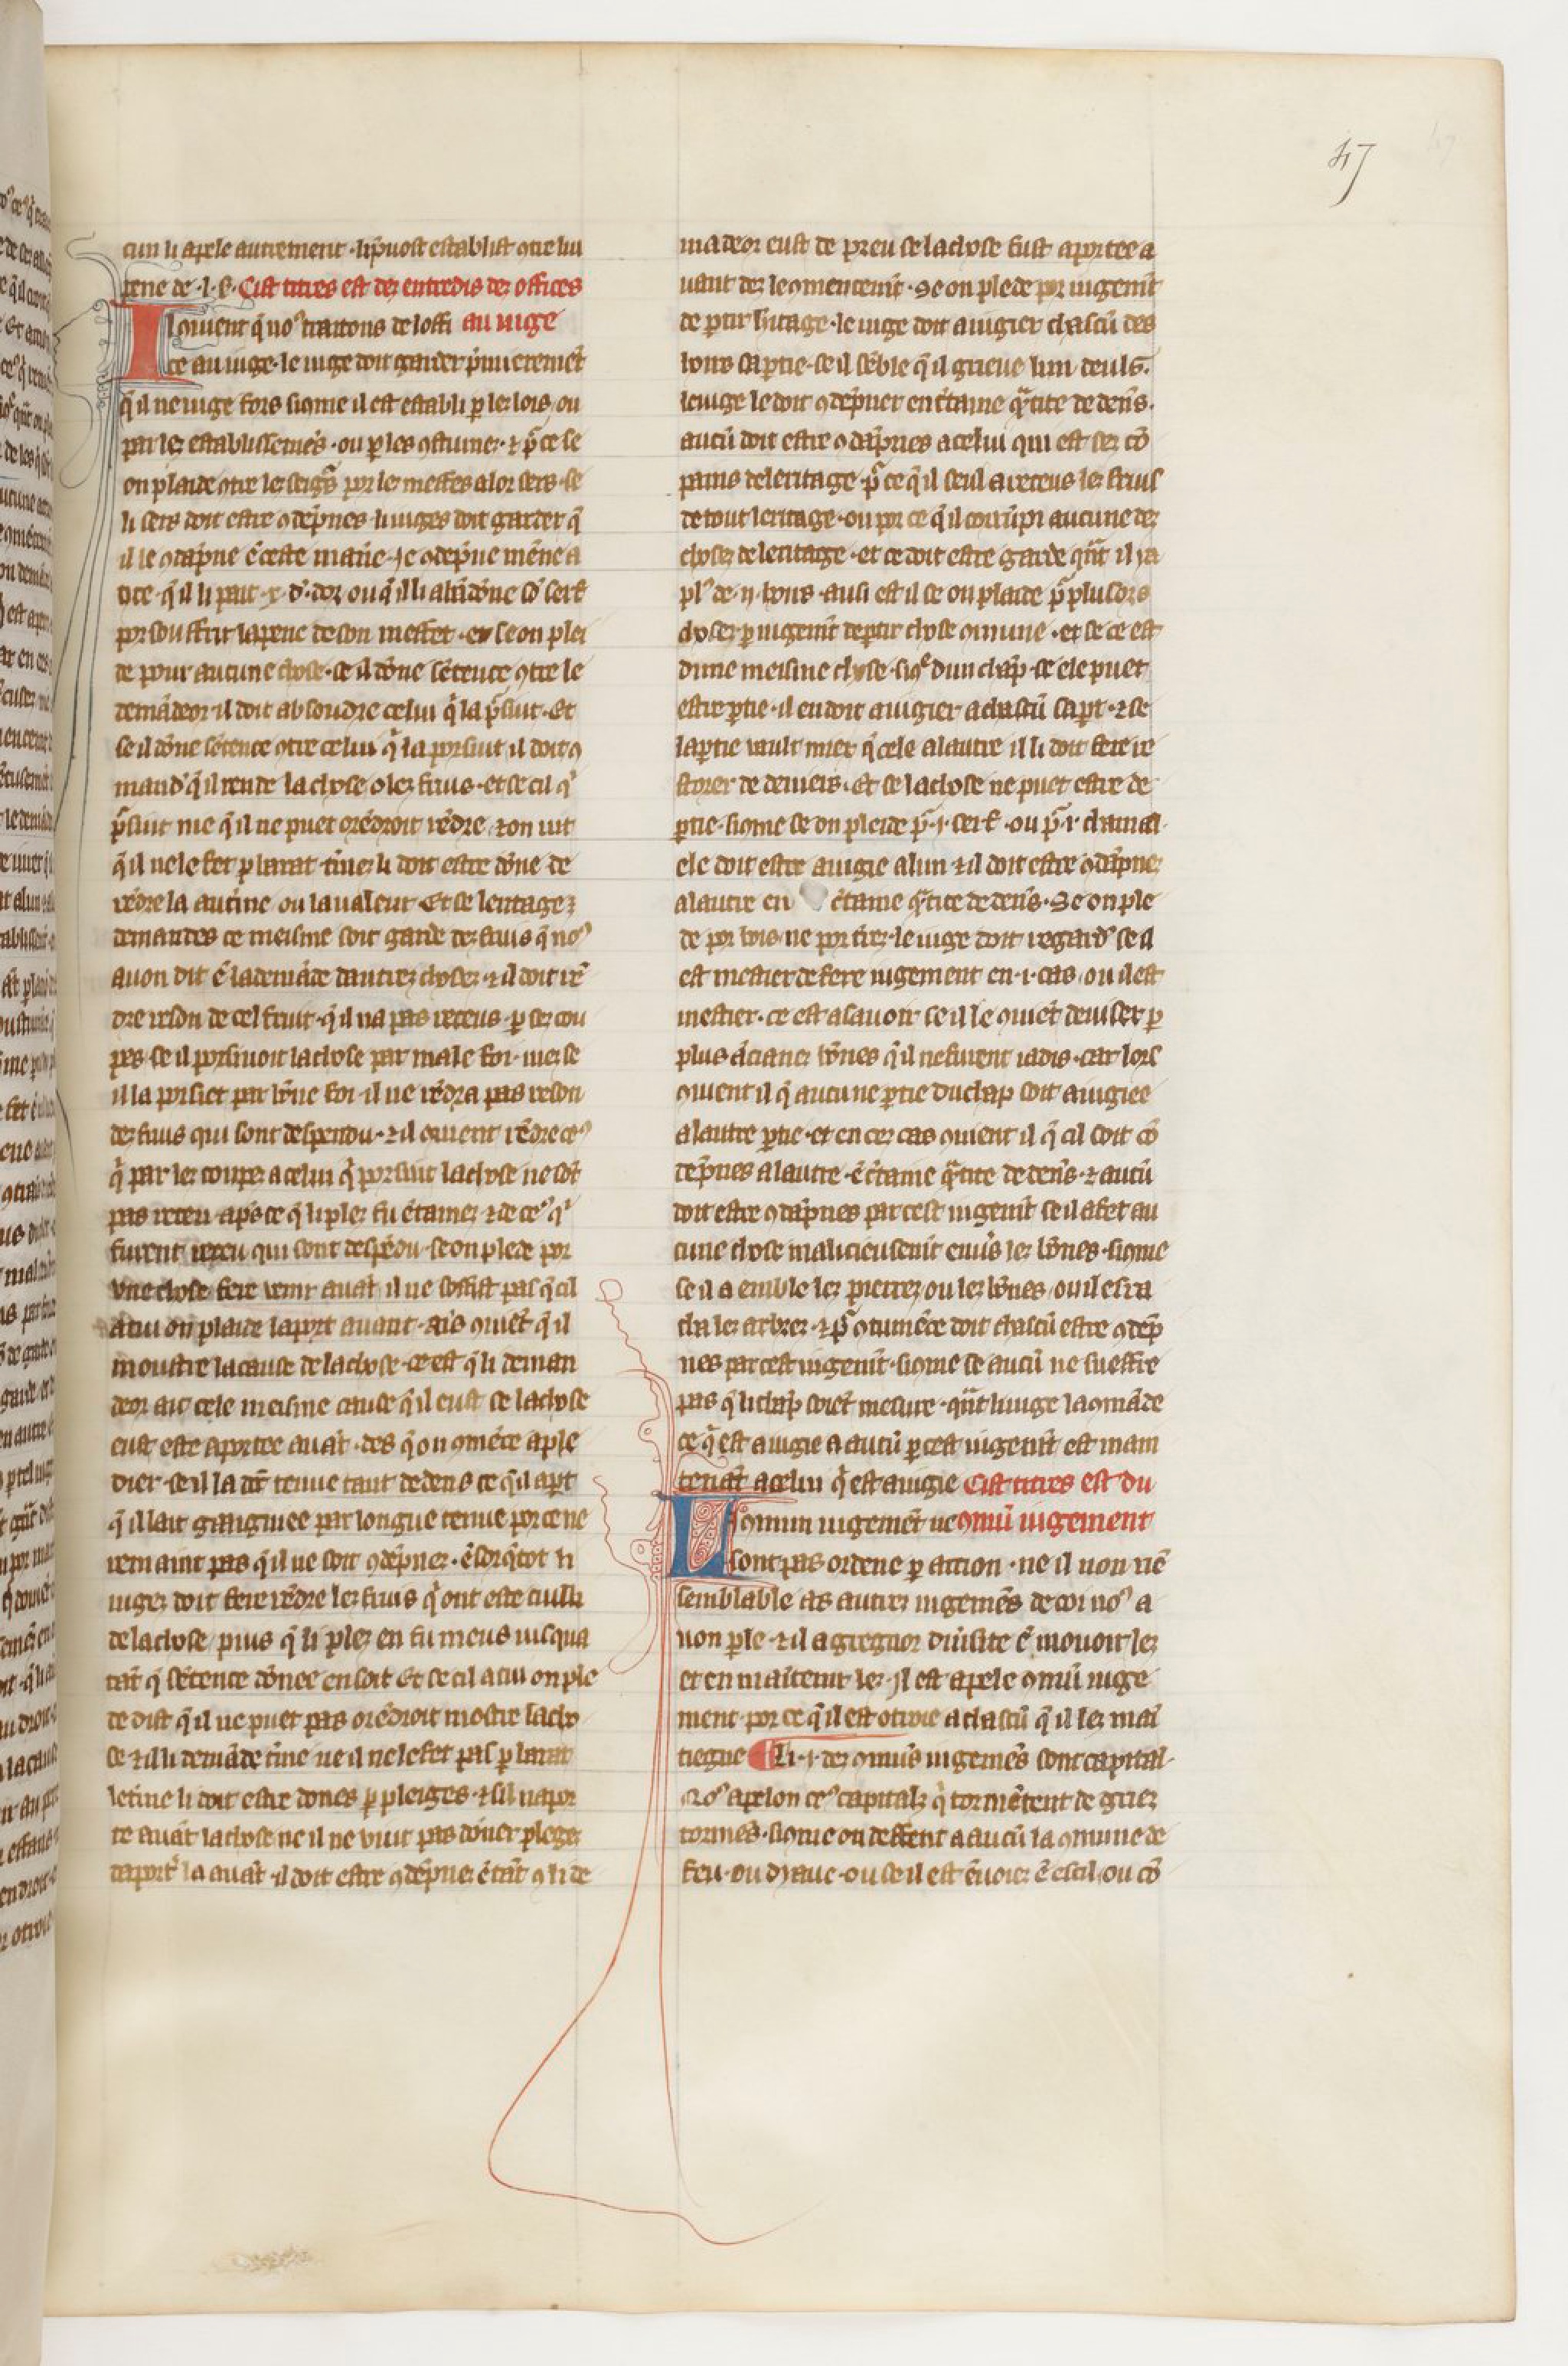 47
cun li apele autrement · li pͥuost establist ꝯtre lui
peine de .l. ẜ. Cist titres est des entredis des offices
Il ꝯuient q̃ noꝰ traitons de loffi au iuge
ce au iuge · le iuge doit garder pͥmieremẽt
q̃ il ne iuge fors siꝯme il est establi ꝑ les lois ou
par les establissemẽs · ou ꝑ les ꝯstumes · ⁊ pͬ ce se
on plaide ꝯtre les seigᷣs por les meffes a lor sers · se
li sers doit estre ꝯdẽpnes · li iuges doit garder q̃
il le ꝯdãpne ẽ ceste maniẽ · Je ꝯdẽpne mẽne a
tice · q̃ il li pait · x · d' · dor ou q̃ il li abãdõne sõ serf
por souffrir la peine de son meffet · et se on plei
de pour aucune chose · se il dõne sẽtence ꝯtre le
demãdeor · il doit absoudre celui q̃ la pͬsiut · Et
se il dõne sẽtence ꝯtre celui q̃ la porsiut il doit ꝯ
mand' q̃ il rende la chose o les fruis · et se cil qͥ
pͬsiut nie q̃ il ne puet orẽdroit rẽdre · ⁊ on uit
q̃ il ne le fet ꝑ barat · tẽmes li doit estre dõne de
rẽdre la autẽme ou la ualeur · Et se leritage ⁊
demandes ce meisme soit garde des fruis q̃ noꝰ
auon dit ẽ la demãde dautres choses · ⁊ il doit rẽ
dre reson de cel fruit · q̃ il na pas receus · ꝑ ses cou
pes · se il porsiuoit la chose par male foi · mes se
il la porsiet par bõne foi · il ne rẽdra pas reson
des fruis qui sont despendu · ⁊ il ꝯuient rẽdre ceꝰ
q̃ par les coupes a celui q̃ porsiut la chose ne sõt
pas receu · apͬs ce q̃ li ples fu ẽtames · ⁊ de ceꝰ qͥ
furent receu qui sont despẽdu · se on plede por
vne chose fere venir auãt il ne soffist pas q̃ cil
a cui on plaide laport auant · aĩs ꝯuiẽt q̃ il
moustre la cause de la chose · ce est q̃ li deman
deor ait cele meisme cause q̃ il eust se la chose
eust este aportee auãt · des q̃ on ꝯmẽce a ple
dier · se il la dͬ tenue tant dedens ce q̃ il apͬt
q̃ il lait graigniee par longue tenue por ce ne
remaint pas q̃ il ne soit ꝯdẽpnes · ẽ sorq̃tot li
iuges doit fere rẽdre les fruis q̃ ont este cuilli
de la chose puis q̃ li ples en fu meus iusqua
tãt q̃ sẽtence dõnee en soit · Et se cil a cui on ple
de dist q̃ il ne puet pas orẽdroit mostre la cho
se · ⁊ il li demãde tẽme ne il ne le fet pas ꝑ barat
le tẽme li doit estre dones ꝑ pleiges · ⁊ sil napor
te auãt la chose ne il ne viut pas dõner pleges
daportͬ la auãt · il doit estre ꝯdẽpnes ẽ tãt ꝯ li de
madeor eust de preu se la chose fust aportee a
uant des le ꝯmencemẽt · Se on plede por iugemẽt
de ꝑtir hĩtage · le iuge doit aiugier chascũ des
lons sa ꝑtie · se il sẽble q̃ il grieue lun deuls ·
le iuge le doit ꝯdẽpner en c̃taine q̃tite de deñs ·
aucũ doit estre ꝯdãpnes a celui qui est ses cõ
pains de leritage · pͬ ce q̃ il seul a receus les fruis
de tout leritage · ou por ce q̃ il corrũpi aucune des
choses de leritage · et ce doit estre garde qñt il ia
plꝰ de · ij · lons · ausi est il se on plaide pͬ plusors
choses ꝑ iugemẽt de ꝑtir chose ꝯmune · et se ce est
dune meisme chose · siꝯe dun chãp · se ele puet
estre ꝑtie · il en doit aiugier a chascũ sa ꝑt · ⁊ se
la ꝑtie vault mier q̃ cele a lautre il li doit fere re
storer de deniers · Et se la chose ne puet estre de
ꝑtie · siꝯme se on pleide pͬ · i · serf · ou pͬ · i · cheual ·
ele doit estre aiugie a lun ⁊ il doit estre ꝯdãpnes
a lautre en c̃taine q̃tite de deñs · Se on ple
de por bois ne por t̃res · le iuge doit regard' se il
est mestier de fere iugement en · i · cas · ou il est
mestier · ce est asauoir se il le ꝯuiẽt deuiser ꝑ
plus ãcianes bõnes q̃ il ne furent iadis · car lors
ꝯuient il q̃ aucune ꝑtie du chãp soit aiugiee
a lautre ꝑtie · et en ces cas ꝯuient il q̃ cil soit cõ
dẽpnes a lautre · ẽ c̃taine q̃tite de deñs · ⁊ aucũ
doit estre ꝯdãpnes par cest iugemẽt se il a fet au
cune chose malicieusemẽt enuͬs les bõnes · siꝯme
se il a emble les pierres ou les bõnes · ou il esra
cha les arbres · ⁊ pͬ ꝯtumẽce doit chascũ estre ꝯdẽp
nes par cest iugemẽt · siꝯme se aucũ ne sueffre
pas q̃ li chãp soiẽt mesure · qñt li iuge la ꝯmãde
ce q̃ est aiugie a aucũ ꝑ cest iugemẽt est main
tenãt a celui q̃ est aiugie Cist titres est du
Li ꝯmun iugemẽt ne ꝯmũ iugement
sont pas ordene ꝑ action · ne il non riẽ
semblable as autres iugemẽs de coi noꝰ a
uon ple · ⁊ il a gregnor diũsite ẽ mouoir les
et en maĩtenir les · Il est apele ꝯmũ iuge
ment · por ce q̃ il est otroie a chascũ q̃ il les maĩ
tiegne ¶ Li · i · des ꝯmũs iugemẽs sont capital ·
Noꝰ apelon ceꝰ capitals q̃ tormẽtent de griez
tormẽs · siꝯme on deffent a aucũ la ꝯmune de
feu · ou dyaue · ou se il est ẽuoies ẽ escil · ou cõ